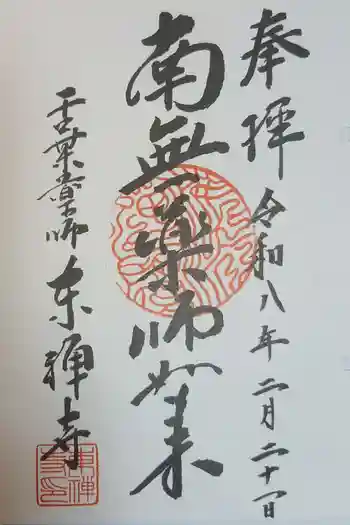 奉拝 令和八年二月二十一日
南無薬師如来
千葉薬師 東禅寺